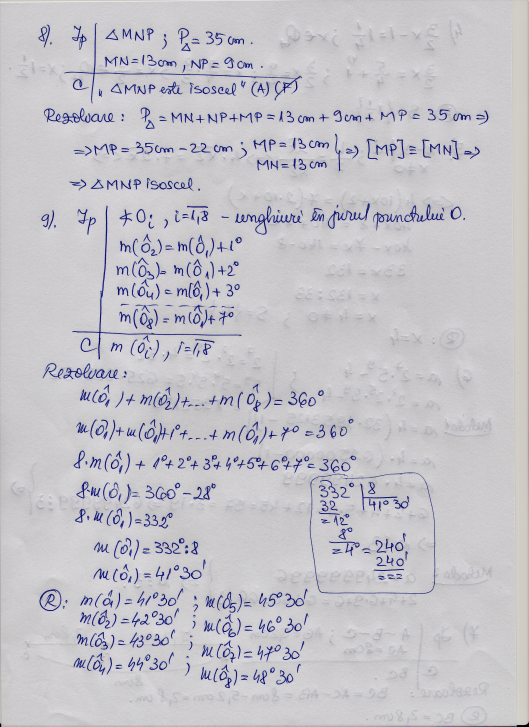 8). Ip | △MNP ; P△ = 35 cm.
MN = 13cm, NP = 9 cm.
C | "△MNP este isoscel" (A) (F)
Rezolvare: P△ = MN+NP+MP = 13 cm + 9 cm + MP = 35 cm ⇒
⇒ MP = 35cm − 22 cm ; MP = 13cm
MN = 13cm | ⇒ [MP] ≡ [MN] ⇒
⇒ △MNP isoscel.
9). Ip | ∢Oi, i=1,8 − unghiuri în jurul punctului O.
m(Ô2) = m(Ô1)+1°
m(Ô3) = m(Ô1)+2°
m(Ô4) = m(Ô1)+3°
m(Ô8) = m(Ô1)+7°
C | m(Ôi), i=1,8
Rezolvare:
m(Ô1) + m(Ô2)+...+ m(Ô8) = 360°
m(Ô1)+m(Ô1)+1°+...+ m(Ô1)+7° = 360°
8·m(Ô1) + 1°+2°+3°+4°+5°+6°+7° = 360°
8·m(Ô1) = 360° − 28°
8·m(Ô1) = 332°
m(Ô1) = 332°:8
m(Ô1) = 41°30'
332° | 8
32 | 41°30'
=12°
8°
=4° = 240'
240'
===
R: m(Ô1) = 41°30' ; m(Ô5) = 45°30'
m(Ô2) = 42°30' ; m(Ô6) = 46°30'
m(Ô3) = 43°30' ; m(Ô7) = 47°30'
m(Ô4) = 44°30' ; m(Ô8) = 48°30'